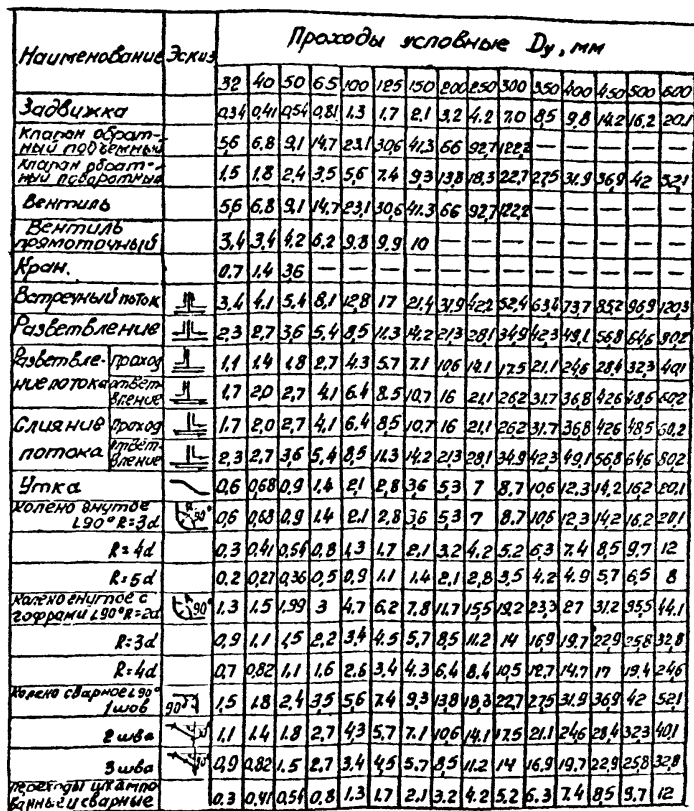 Наименование Эскиз Проходы условные Dу, мм
32 40 50 65 100 125 150 200 250 300 350 400 450 500 600
Задвижка 0,34 0,41 0,54 0,81 1.3 1.7 2.1 3.2 4.2 7.0 8,5 9,8 14.2 16.2 20,1
Клапан обрат-
ный подъемный 5,6 6.8 9,1 14,7 23,1 30,6 41,3 66 92,7 122,2 — — — — —
Клапан обрат-
ный поворотный 1.5 1.8 2.4 3.5 5,6 7.4 9,3 13,8 18,3 22,7 27,5 31,9 36,9 42 52,1
Вентиль 5,6 6,8 9,1 14,7 23,1 30,6 41,3 66 92,7 122,2 — — — — —
Вентиль
прямоточный 3,4 3,4 4.2 6.2 9.8 9,9 10 — — — — — — — —
Кран. 0.7 1.4 3.6 — — — — — — — — — — — —
Встречный поток 3,4 4.1 5.4 8,1 12,8 17 21,4 31,9 42,2 52,4 63,4 73,7 85,2 96,9 120,3
Разветвление 2,3 2.7 3,6 5.4 8,5 11.3 14.2 21,3 28,1 34,9 42,3 49,1 56,8 64,6 80,2
Разветвле- проход 1.1 1.4 1.8 2.7 4.3 5.7 7.1 10,6 14,1 17,5 21.1 24,6 28,4 32,3 40,1
ние потока ответ-
вление 1,7 2,0 2,7 4,1 6.4 8.5 10,7 16 21,1 26,2 31.7 36,8 42,6 48,5 60,2
Слияние проход 1.7 2.0 2.7 4,1 6,4 8,5 10,7 16 21,1 26,2 31,7 36,8 42,6 48,5 60,2
потока ответ-
вление 2,3 2,7 3,6 5,4 8,5 11,3 14.2 21,3 28,1 34,9 42,3 49,1 56,8 64,6 80,2
Утка 0,6 0,68 0.9 1.4 2,1 2,8 3,6 5,3 7 8.7 10,6 12.3 14,2 16,2 20,1
Колено гнутое
∠90° R=3d 90° 0,6 0,68 0.9 1.4 2.1 2,8 3,6 5,3 7 8.7 10,6 12.3 14,2 16,2 20,1
R=4d 0,3 0,41 0,54 0,8 1.3 1.7 2.1 3.2 4.2 5.2 6.3 7.4 8,5 9,7 12
R=5d 0.2 0,27 0,36 0,5 0.9 1.1 1.4 2.1 2.8 3,5 4.2 4.9 5.7 6,5 8
Колено гнутое с
гофрами ∠90° R=2d 90° 1.3 1.5 1,99 3 4.7 6.2 7.8 11.7 15,5 19,2 23,3 27 31,2 35,5 44,1
R=3d 0,9 1,1 1,5 2,2 3,4 4.5 5,7 8,5 11,2 14 16,9 19,7 22,9 25,8 32,8
R=4d 0,7 0,82 1,1 1.6 2.6 3,4 4.3 6,4 8.4 10,5 12,7 14,7 17 19,4 24,6
Колено сварное ∠90°
1 шов 90° 1,5 1.8 2,4 3,5 5,6 7.4 9,3 13,8 18,3 22,7 27,5 31.9 36,9 42 52,1
2 шва 1,1 1.4 1.8 2.7 4,3 5,7 7,1 10,6 14,1 17,5 21.1 24,6 28,4 32,3 40,1
3 шва 0,9 0,82 1.5 2.7 3.4 4.5 5,7 8,5 11.2 14 16,9 19,7 22,9 25,8 32,8
Переходы штампо
ванные и сварные 0.3 0,41 0,54 0,8 1.3 1.7 2.1 3.2 4.2 5,2 6.3 7.4 8,5 9,7 12